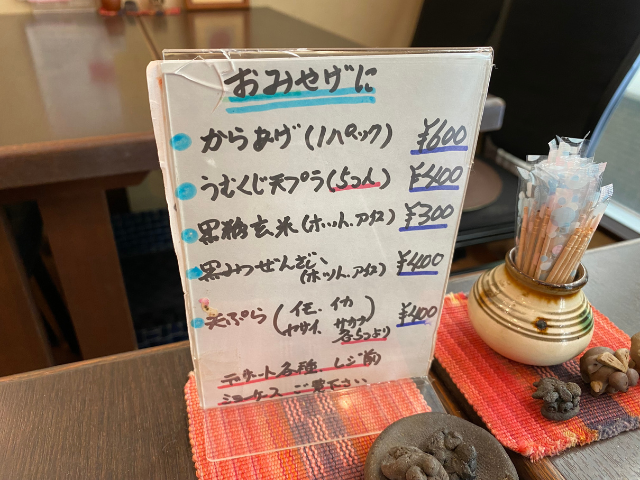 おみやげに
からあげ(1パック) ¥600
うむくじ天プラ(5コ入) ¥400
黒糖玄米(ホット、アイス) ¥300
黒みつぜんざい(ホット、アイス) ¥400
天ぷら(イモ、イカ ¥400
ヤサイ、サカナ)
各5コより
デザート各種、レジ前
ショーケースご覧下さい